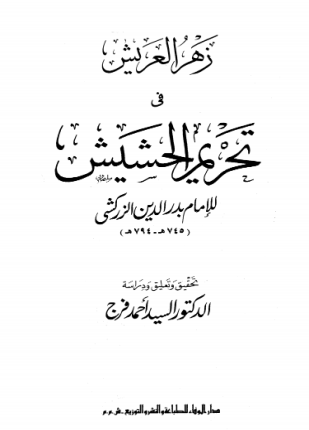 زهر العريش
في
تحريم الحشيش
للإمام بدر الدين الزركشي
(٧٤٥هـ - ٧٩٤هـ)
تحقيق وتعليق ودراسة
الدكتور السيد أحمد فرج
دار الوفاء للطباعة والنشر والتوزيع - ش.م.م